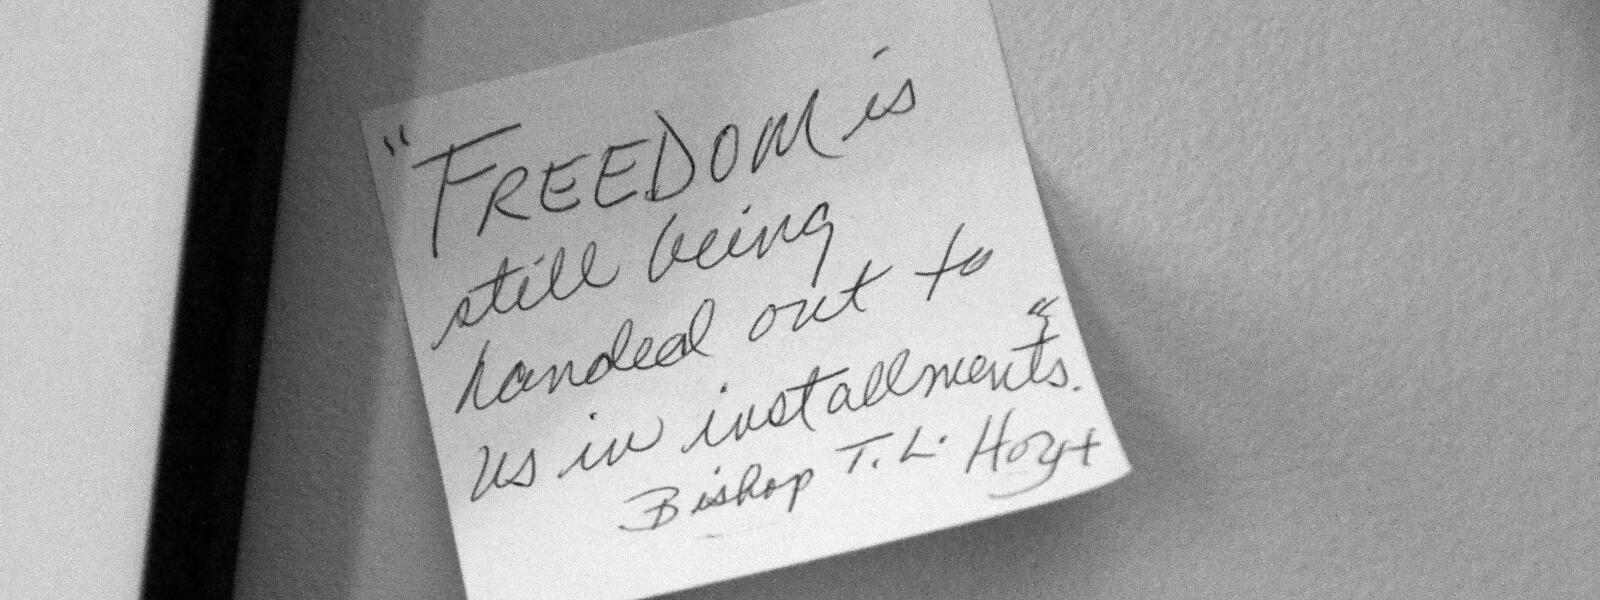 "FREEDOM is
still being
handed out to
us in installments."
Bishop T. L. Hoyt